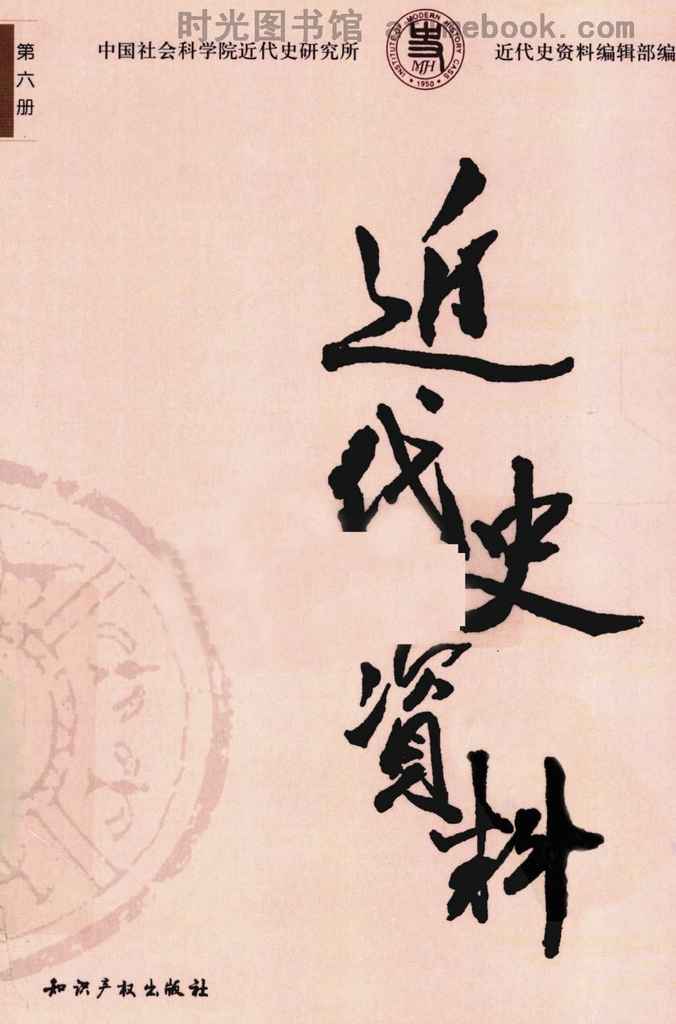 时光图书馆
第六册
中国社会科学院近代史研究所
INSTITUTE OF MODERN HISTORY CASS
1950
近代史资料编辑部编
近代史資料
知识产权出版社